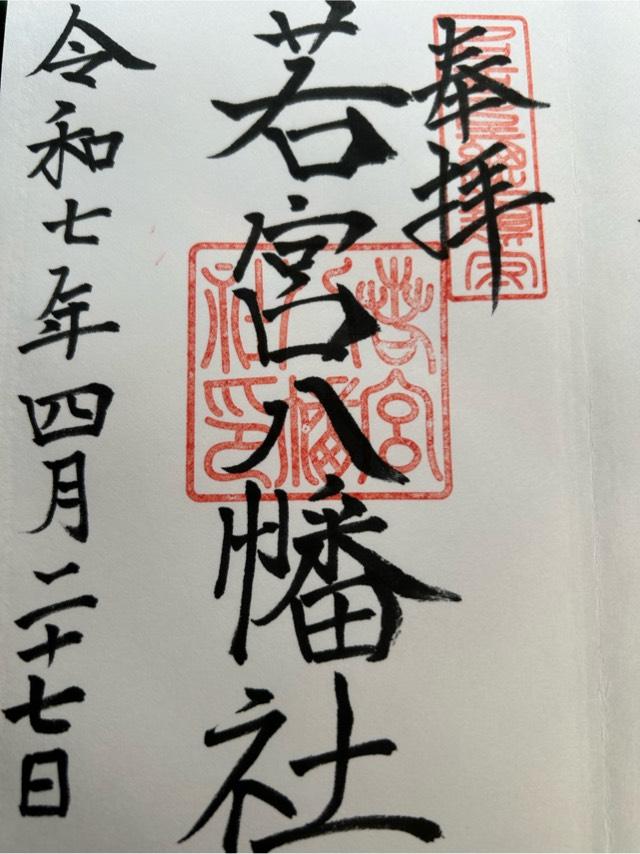 奉拝
若宮八幡社
若宮八幡社印
令和七年四月二十七日